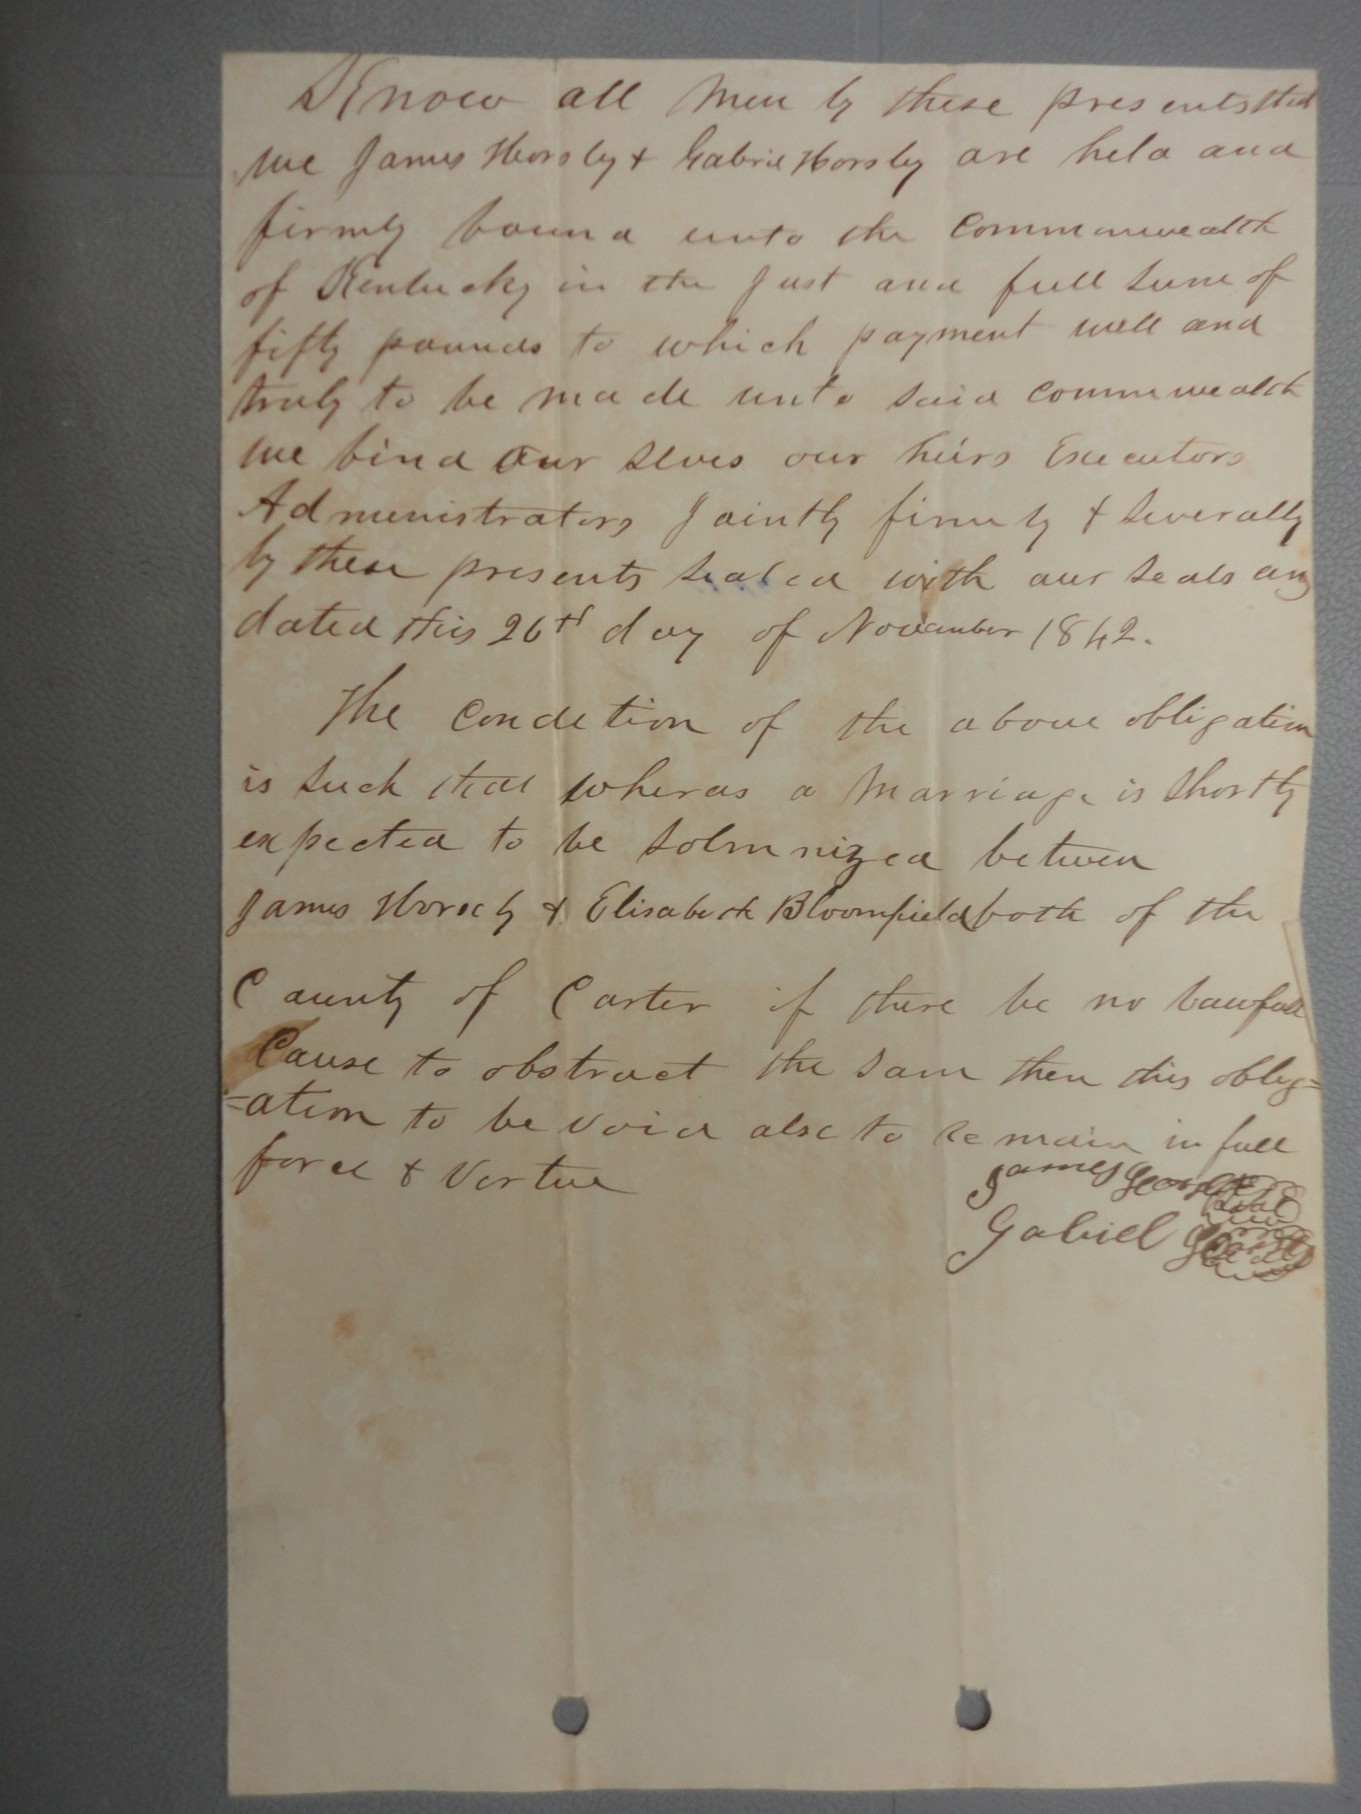 Know all Men by these presents that
we James Horsley & Gabriel Horsley are held and
firmly bound unto the Commonwealth
of Kentucky in the Just and full Sum of
fifty pounds to which payment well and
truly to be made unto said commwealth
we bind our selves our heirs Executors
Administrators Jointly firmly & Severally
by these presents sealed with our seals and
dated this 26th day of November 1842.
The Condetion of the above obligation
is such that wheras a Marriage is Shortly
expected to be Solmnized between
James Horsely & Elisabeth Bloomfield both of the
County of Carter if there be no lawfull
Cause to obstruct the Same then this oblig=
=ation to be void also to remain in full
force & Vertue
James Horsley Seal
Gabriel Horsley Seal